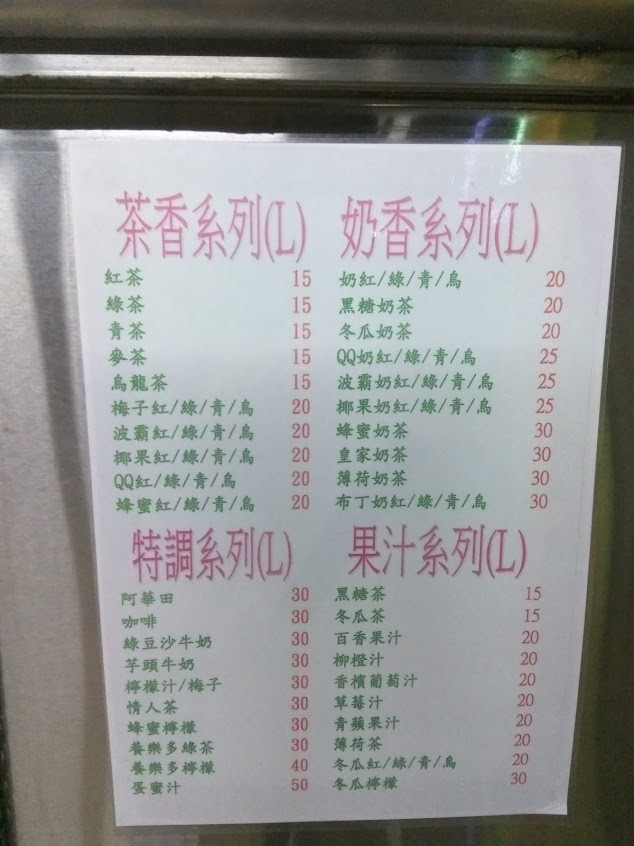 茶香系列(L)
紅茶 15
綠茶 15
青茶 15
麥茶 15
烏龍茶 15
梅子紅/綠/青/烏 20
波霸紅/綠/青/烏 20
椰果紅/綠/青/烏 20
QQ紅/綠/青/烏 20
蜂蜜紅/綠/青/烏 20
奶香系列(L)
奶紅/綠/青/烏 20
黑糖奶茶 20
冬瓜奶茶 20
QQ奶紅/綠/青/烏 25
波霸奶紅/綠/青/烏 25
椰果奶紅/綠/青/烏 25
蜂蜜奶茶 30
皇家奶茶 30
薄荷奶茶 30
布丁奶紅/綠/青/烏 30
特調系列(L)
阿華田 30
咖啡 30
綠豆沙牛奶 30
芋頭牛奶 30
檸檬汁/梅子 30
情人茶 30
蜂蜜檸檬 30
養樂多綠茶 30
養樂多檸檬 40
蛋蜜汁 50
果汁系列(L)
黑糖茶 15
冬瓜茶 15
百香果汁 20
柳橙汁 20
香檳葡萄汁 20
草莓汁 20
青蘋果汁 20
薄荷茶 20
冬瓜紅/綠/青/烏 20
冬瓜檸檬 30